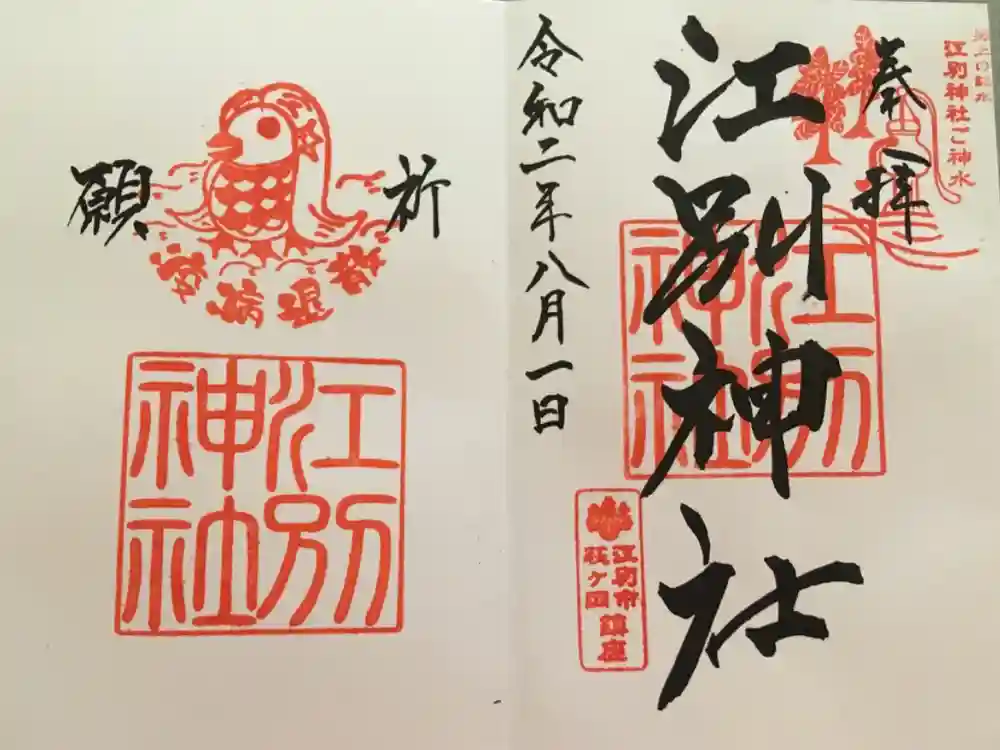 奉拝
江別神社ご神水
江別神社
江別神社
令和二年八月一日
江別市
萩ヶ岡
鎮座
祈願
疫病退散
江別神社